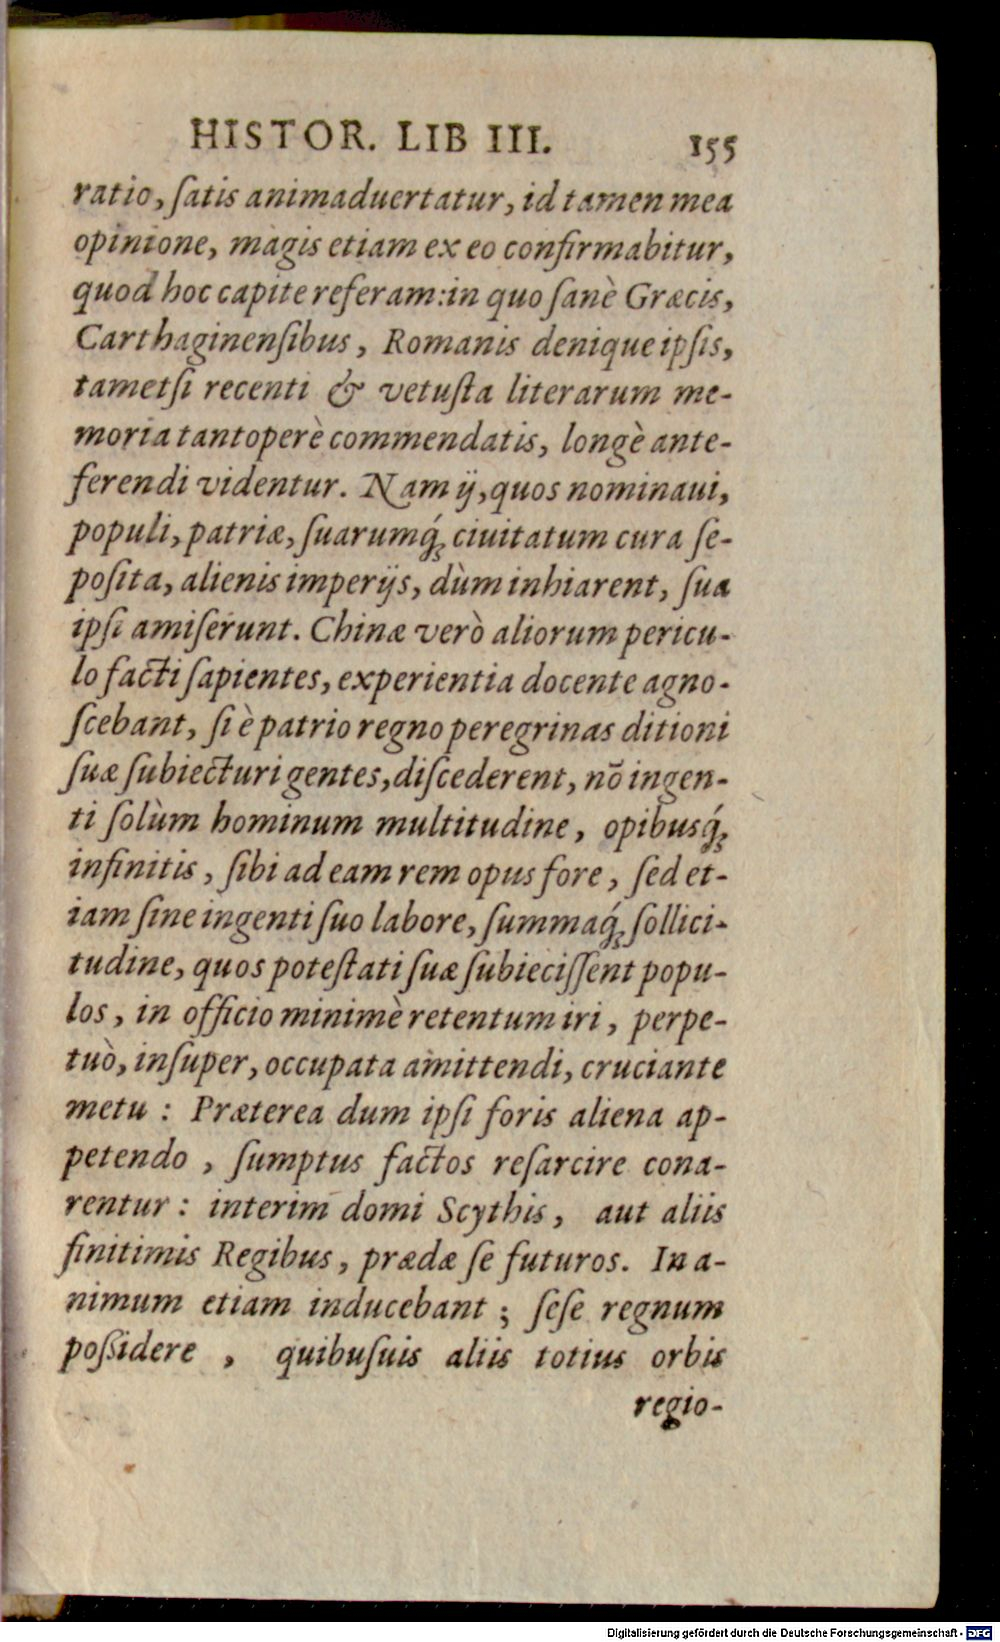 HISTOR. LIB III. 155
ratio, ſatis animaduertatur, id tamen mea
opinione, magis etiam ex eo confirmabitur,
quod hoc capite referam: in quo ſanè Græcis,
Carthaginenſibus, Romanis denique ipſis,
tametſi recenti & vetuſta literarum me-
moria tantoperè commendatis, longè ante-
ferendi videntur. Nam ij, quos nominaui,
populi, patriæ, ſuarumq́; ciuitatum cura ſe-
poſita, alienis imperijs, dùm inhiarent, ſua
ipſi amiſerunt. Chinæ verò aliorum pericu-
lo facti ſapientes, experientia docente agno-
ſcebant, ſi è patrio regno peregrinas ditioni
ſuæ ſubiecturi gentes, diſcederent, nō ingen-
ti ſolùm hominum multitudine, opibusq́;
infinitis, ſibi ad eam rem opus fore, ſed et-
iam ſine ingenti ſuo labore, ſummaq́; ſollici-
tudine, quos poteſtati ſuæ ſubieciſſent popu-
los, in officio minimè retentum iri, perpe-
tuò, inſuper, occupata amittendi, cruciante
metu: Præterea dum ipſi foris aliena ap-
petendo, ſumptus factos reſarcire cona-
rentur: interim domi Scythis, aut aliis
finitimis Regibus, prædæ ſe futuros. In a-
nimum etiam inducebant; ſeſe regnum
poßidere, quibuſuis aliis totius orbis
regio-
Digitalisierung gefördert durch die Deutsche Forschungsgemeinschaft - DFG